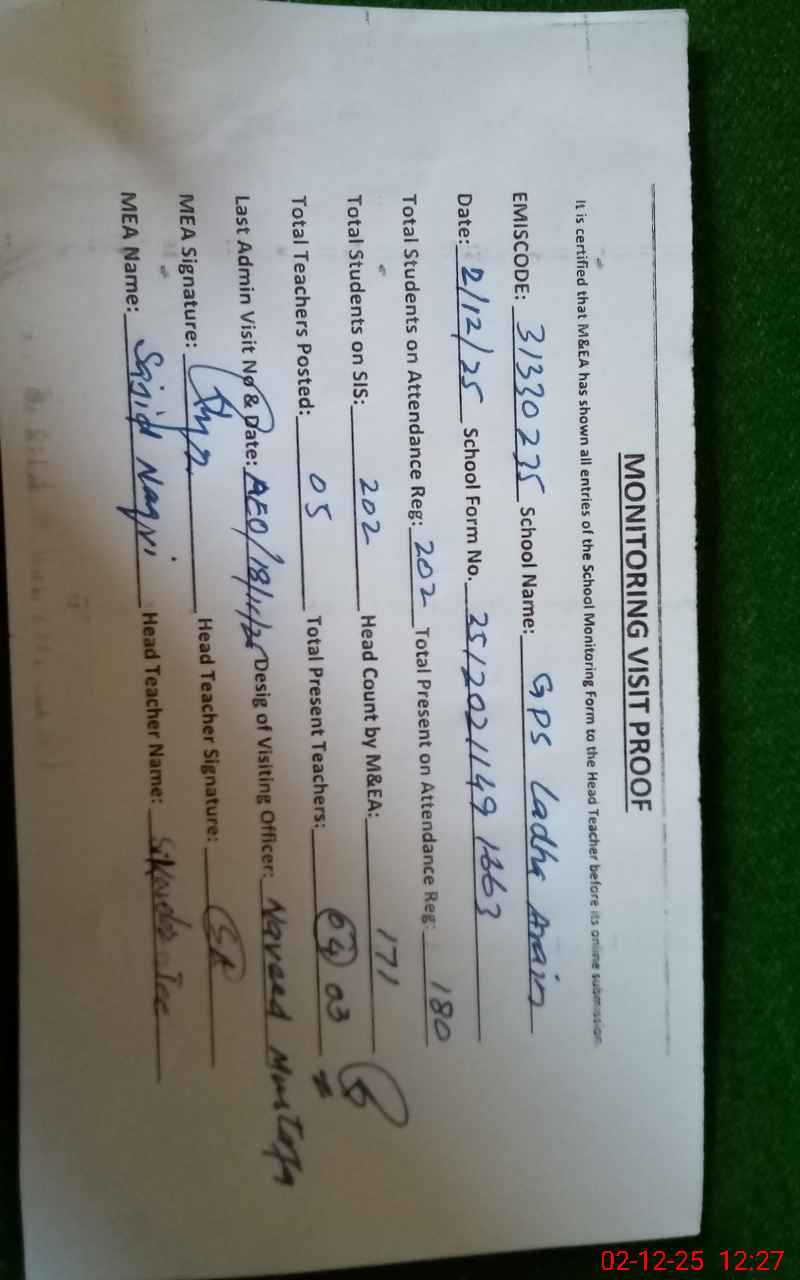 MONITORING VISIT PROOF
It is certified that M&EA has shown all entries of the School Monitoring Form to the Head Teacher before its online submission
EMISCODE: 31330235 School Name: GPS Ladha Arain
Date: 2/12/25 School Form No. 25/2021149 1663
Total Students on Attendance Reg: 202 Total Present on Attendance Reg: 180
Total Students on SIS: 202 Head Count by M&EA: 171
Total Teachers Posted: 05 Total Present Teachers: 04 03
Last Admin Visit No & Date: AEO/18/11/25 Desig of Visiting Officer: Naveed Mustafa
MEA Signature: Head Teacher Signature:
MEA Name: Sajid Naqvi Head Teacher Name:
02-12-25 12:27